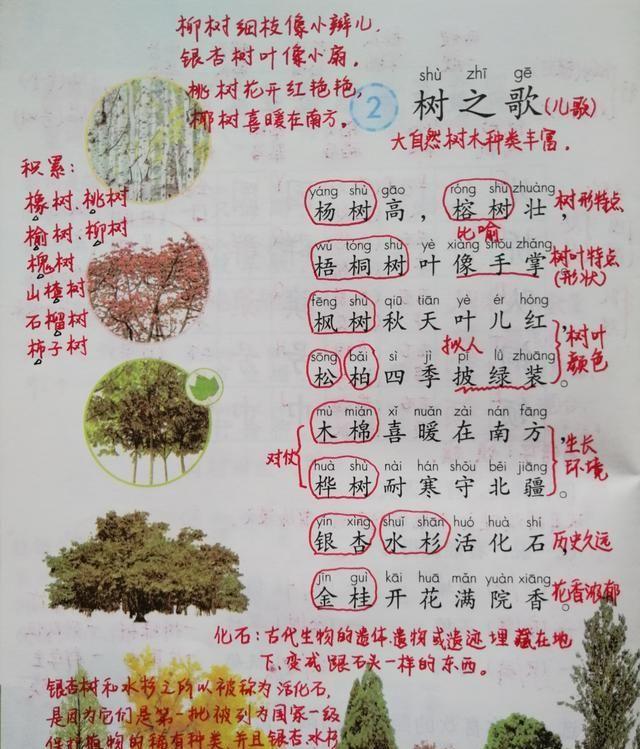 柳树细枝像小辫儿，
银杏树叶像小扇。
桃树花开红艳艳，
椰树喜暖在南方。
shù zhī gē
2 树之歌(儿歌)
大自然树木种类丰富。
积累：
橡树、桃树
榆树、柳树
槐树
山楂树
石榴树
柿子树
yáng shù gāo róng shù zhuàng
杨树高，榕树壮， 树形特点
比喻
wú tóng shù yè xiàng shǒu zhǎng
梧桐树叶像手掌 树叶特点
(形状)
fēng shù qiū tiān yè ér hóng
枫树秋天叶儿红，
树叶
颜色
拟人
sōng bǎi sì jì pī lǜ zhuāng
松柏四季披绿装。
mù mián xǐ nuǎn zài nán fāng
木棉喜暖在南方，
对仗
生长
环境
huà shù nài hán shǒu běi jiāng
桦树耐寒守北疆。
yín xìng shuǐ shān huó huà shí
银杏水杉活化石， 历史久远
jīn guì kāi huā mǎn yuàn xiāng
金桂开花满院香。 花香浓郁
化石：古代生物的遗体、遗物或遗迹埋藏在地
下，变成跟石头一样的东西。
银杏树和水杉之所以被称为活化石，
是因为它们是第一批被列为国家一级
保护植物的稀有种类，并且银杏、水杉